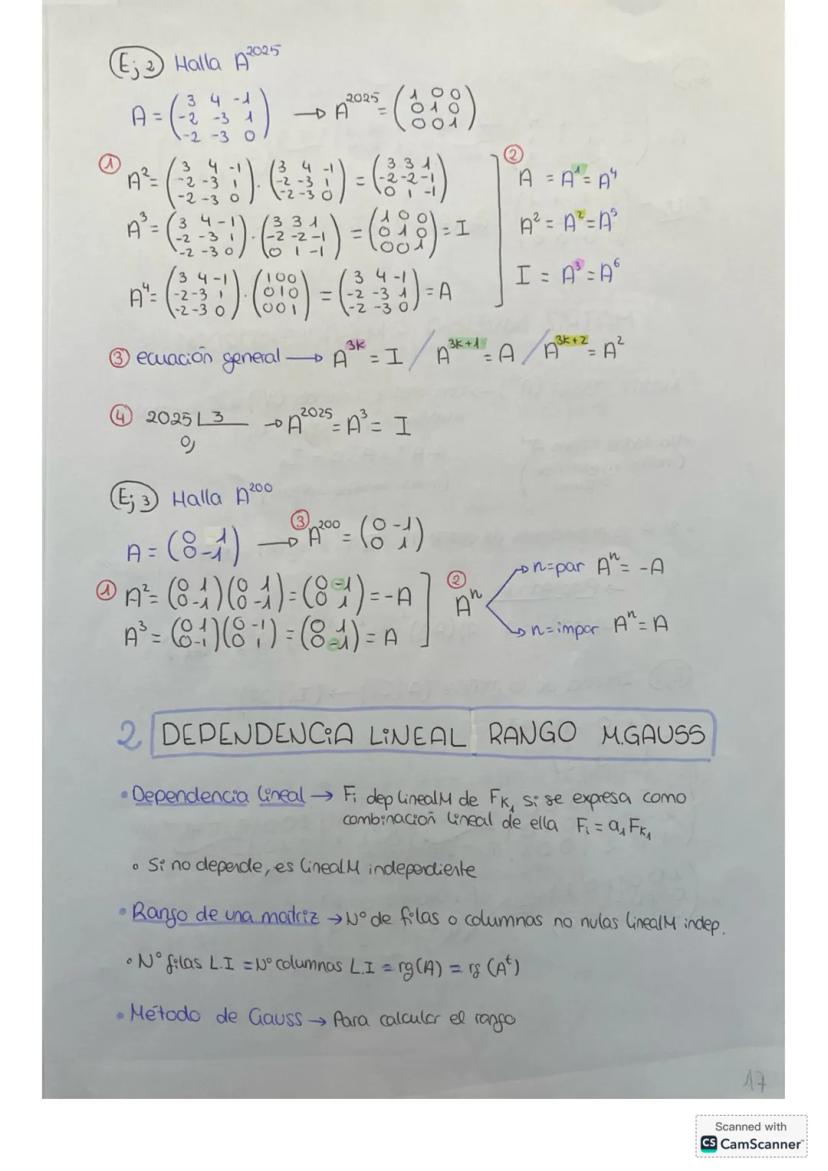 Ej 2 Halla A²⁰²⁵
A = (3 4 -1 / -2 -3 1 / -2 -3 0) → A²⁰²⁵ = (1 0 0 / 0 1 0 / 0 0 1)
① A² = (3 4 -1 / -2 -3 1 / -2 -3 0) · (3 4 -1 / -2 -3 1 / -2 -3 0) = (3 3 1 / -2 -2 -1 / 0 1 -1)
A³ = (3 4 -1 / -2 -3 1 / -2 -3 0) · (3 3 1 / -2 -2 -1 / 0 1 -1) = (1 0 0 / 0 1 0 / 0 0 1) = I
A⁴ = (3 4 -1 / -2 -3 1 / -2 -3 0) · (1 0 0 / 0 1 0 / 0 0 1) = (3 4 -1 / -2 -3 1 / -2 -3 0) = A
② A = A¹ = A⁴
A² = A² = A⁵
I = A³ = A⁶
③ ecuación general → A³ᵏ = I / A³ᵏ⁺¹ = A / A³ᵏ⁺² = A²
④ 2025 | 3 → A²⁰²⁵ = A³ = I
0,
Ej 3 Halla A²⁰⁰
A = (0 1 / 0 -1) → ③ A²⁰⁰ = (0 -1 / 0 1)
① A² = (0 1 / 0 -1) (0 1 / 0 -1) = (0 -1 / 0 1) = -A
A³ = (0 1 / 0 -1) (0 -1 / 0 1) = (0 1 / 0 -1) = A
② Aⁿ
n=par Aⁿ = -A
n=impar Aⁿ = A
2 DEPENDENCIA LINEAL RANGO M.GAUSS
• Dependencia lineal → Fi dep linealM de FK₁ si se expresa como
combinación lineal de ella Fi = a₁ FK₁
◦ Si no depende, es linealM independiente
• Rango de una matriz → Nº de filas o columnas no nulas linealM indep.
◦ Nº filas L.I = Nº columnas L.I = rg(A) = rg (Aᵗ)
• Método de Gauss → Para calcular el rango
17
Scanned with
CS CamScanner